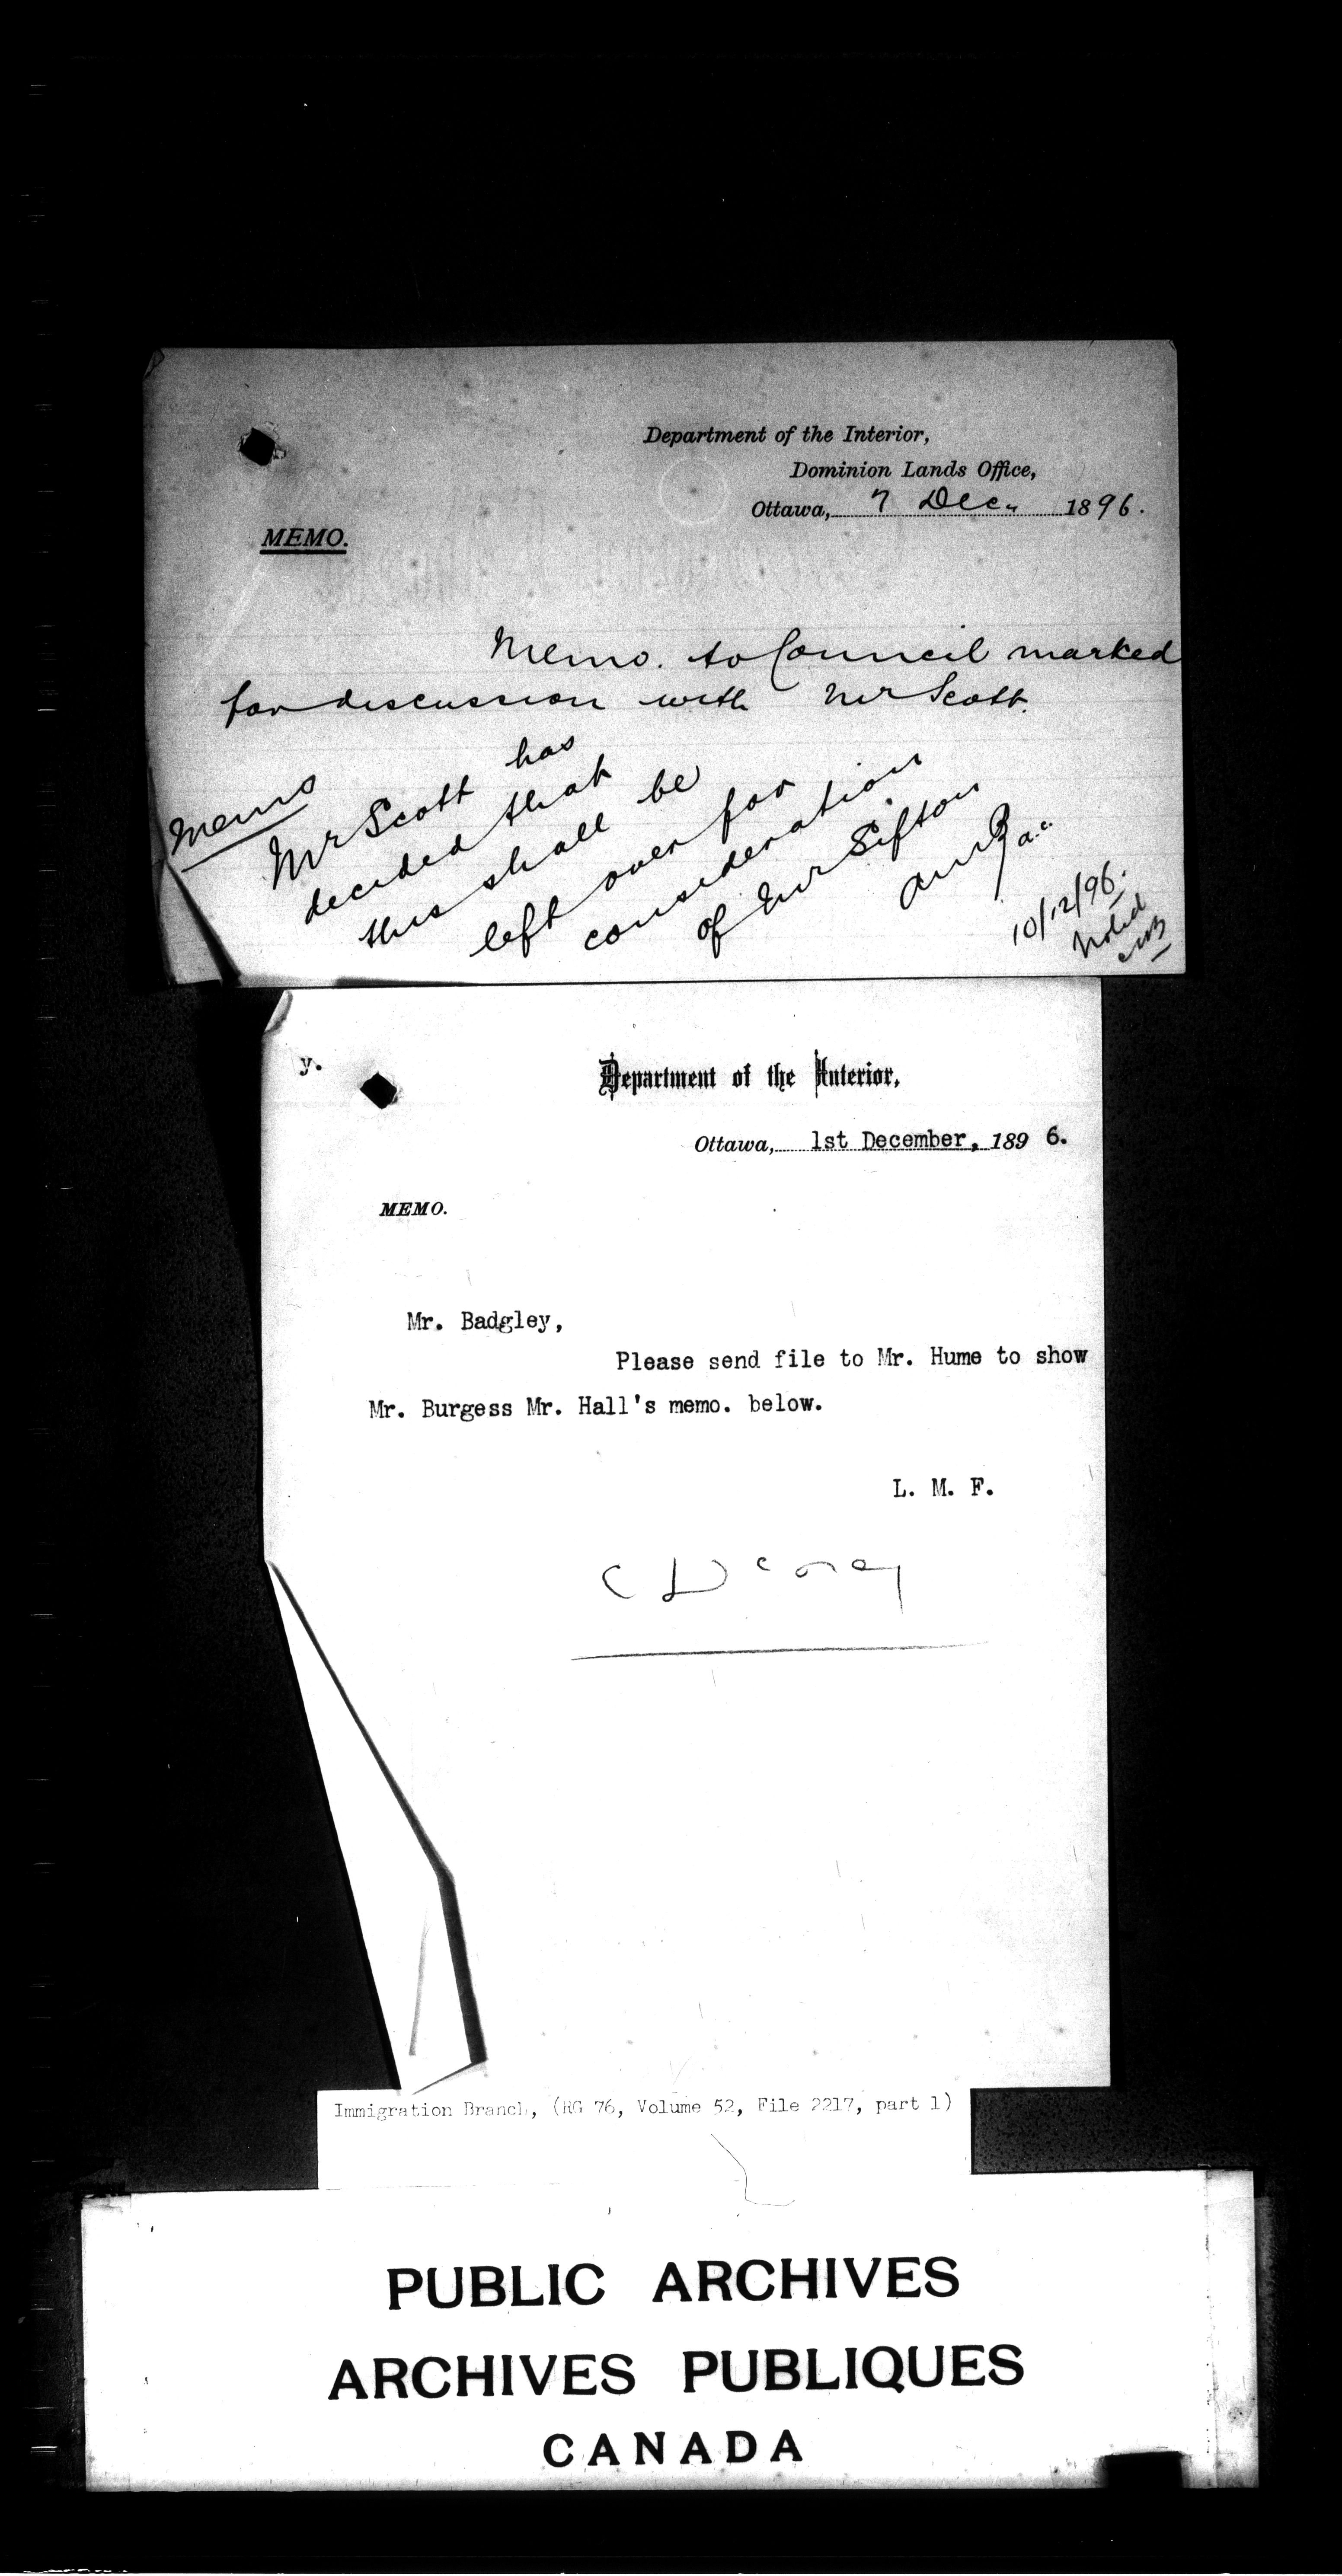 Department of the Interior,
Dominion Lands Office,
Ottawa, 7 Dec. 1896.
MEMO.
Memo. to Council marked
for discussion with Mr Scott.
Memo
Mr Scott has
decided that
this shall be
left over for
consideration
of Mr Sifton
10/12/96.
Noted
y.
Department of the Interior,
Ottawa, 1st December, 1896.
MEMO.
Mr. Badgley,
Please send file to Mr. Hume to show
Mr. Burgess Mr. Hall's memo. below.
L. M. F.
Immigration Branch, (RG 76, Volume 52, File 2217, part 1)
PUBLIC ARCHIVES
ARCHIVES PUBLIQUES
CANADA